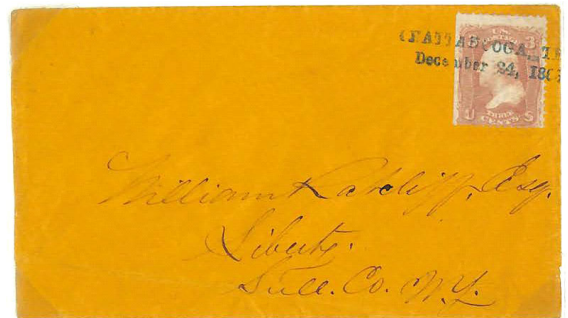 CHATTANOOGA, TE
December 24, 186
U S
THREE
CENTS
William Ratcliff, Esq.
Liberty.
Sull. Co. N.Y.